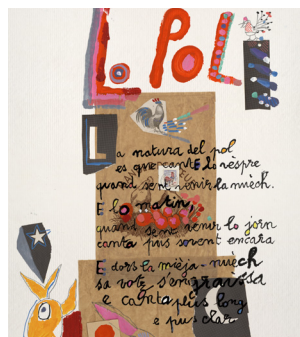 Lo Pol
La natura del pol
es que cante lo vèspre
quand sent venir la nuèch.
E lo matin,
quand sent venir lo jorn
canta pus sovent encara
E dors la mièja-nuèch
sa votz s'engraissa
e canta plus long
e pus clar